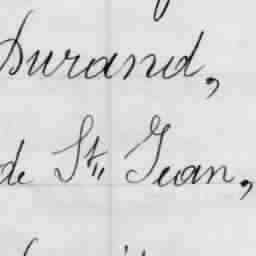 Durand,
de St,, Jean,